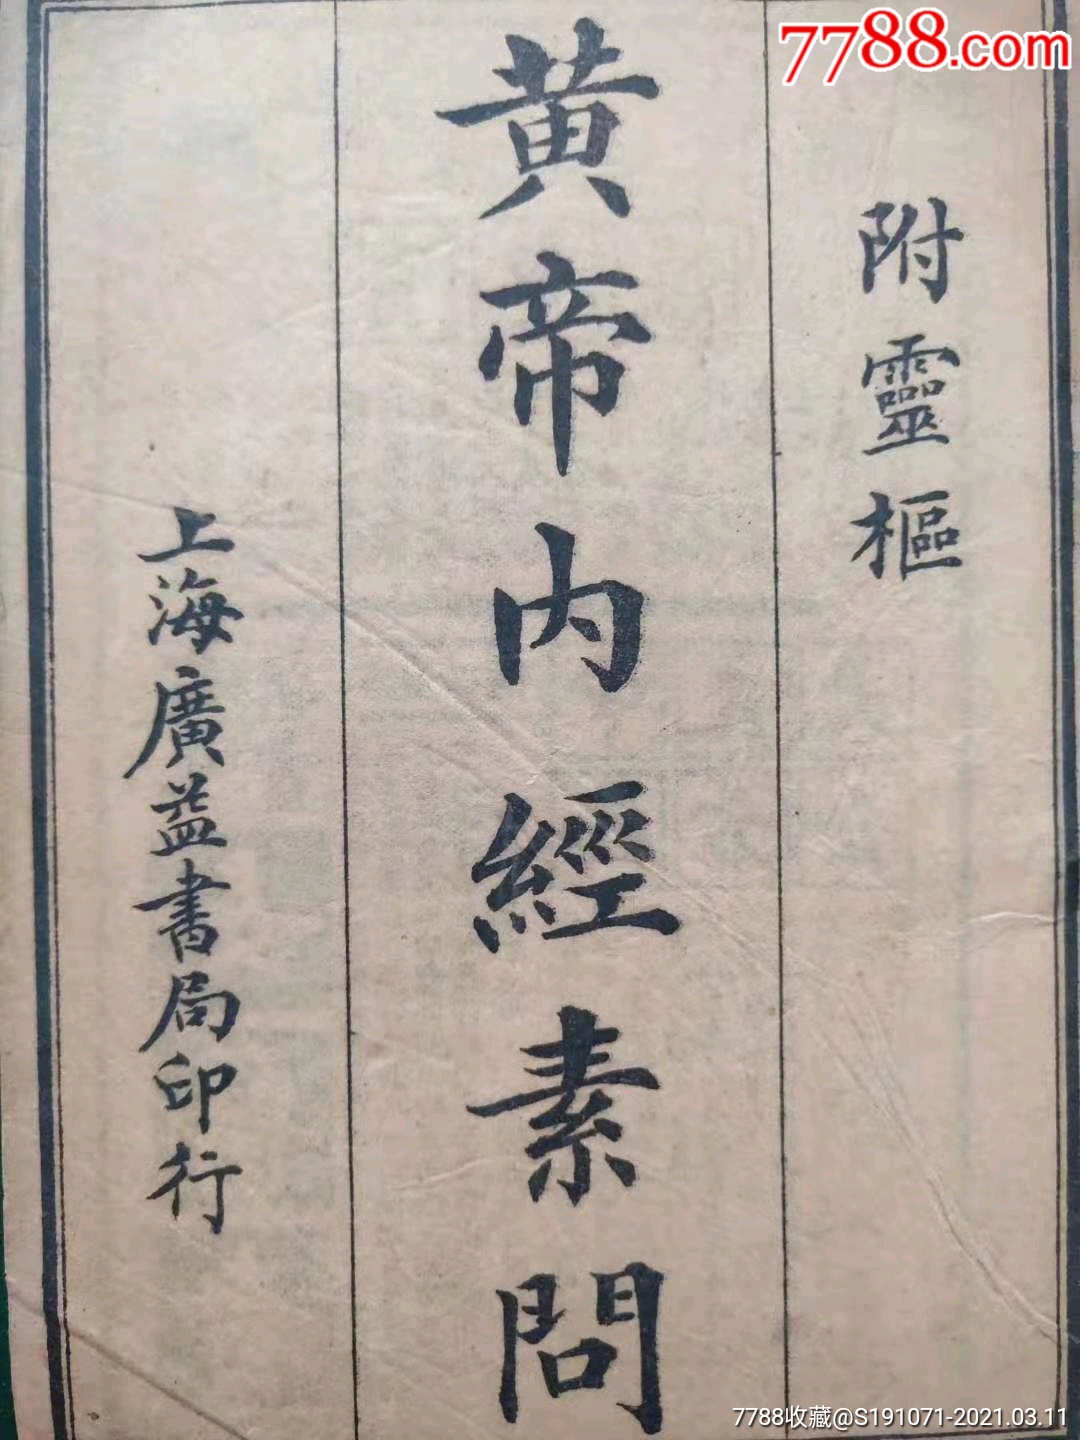 7788.com
附靈樞
黃帝內經素問
上海廣益書局印行
7788收藏@S191071-2021.03.11